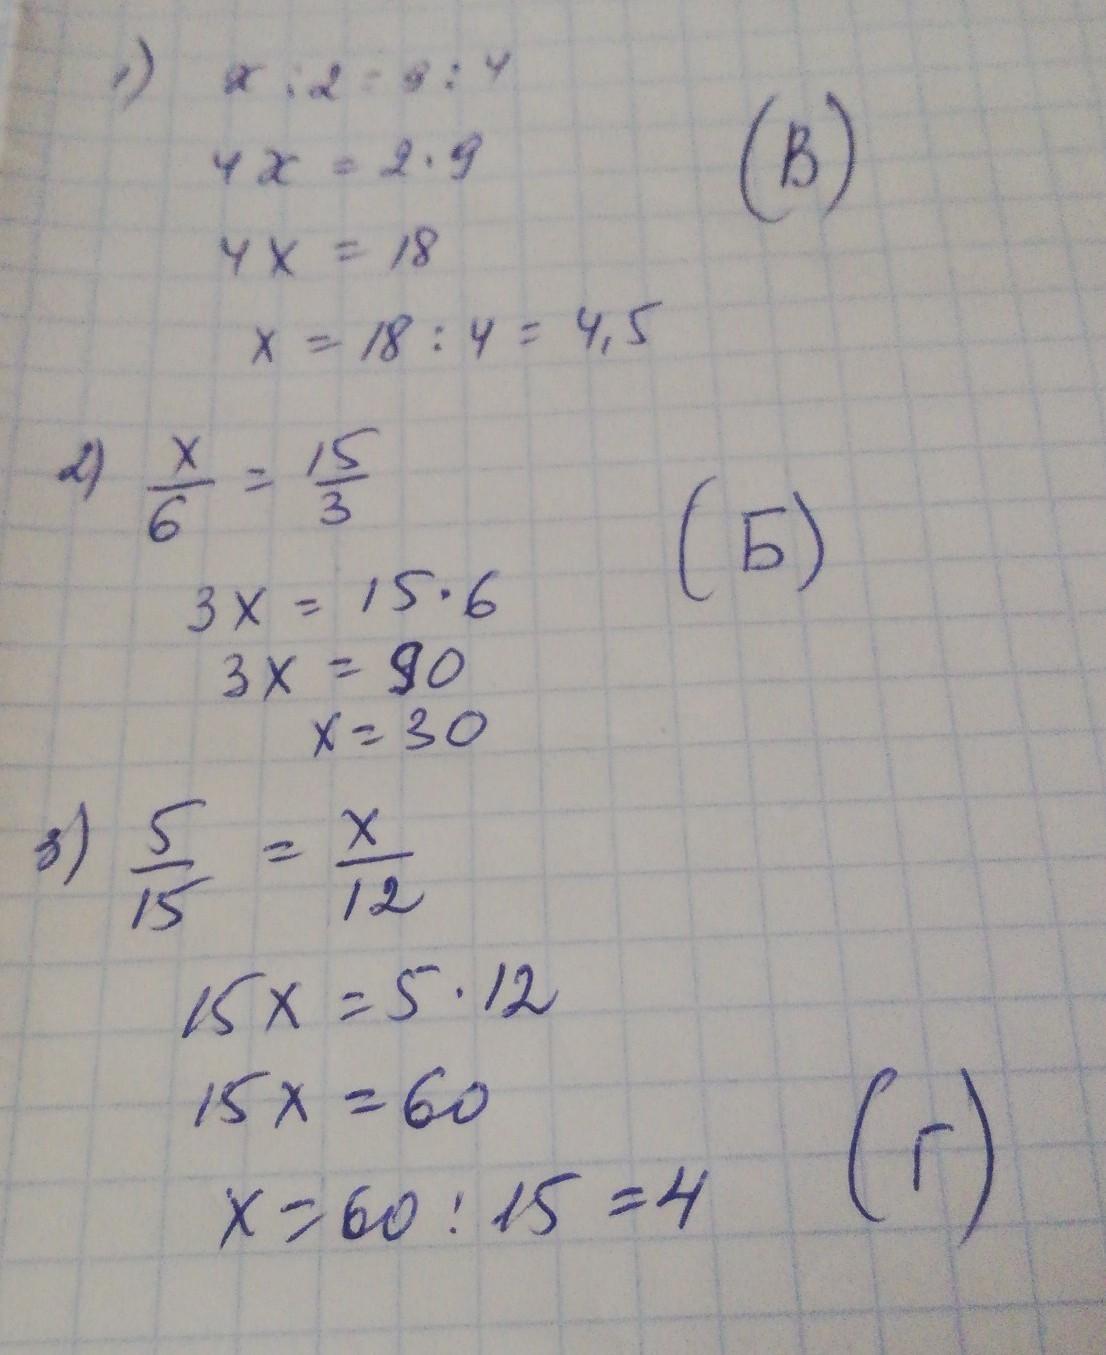 1) x : 2 = 9 : 4
4x = 2 · 9
(В)
4x = 18
x = 18 : 4 = 4,5
2) x/6 = 15/3
(Б)
3x = 15 · 6
3x = 90
x = 30
3) 5/15 = x/12
15x = 5 · 12
15x = 60
(Г)
x = 60 : 15 = 4